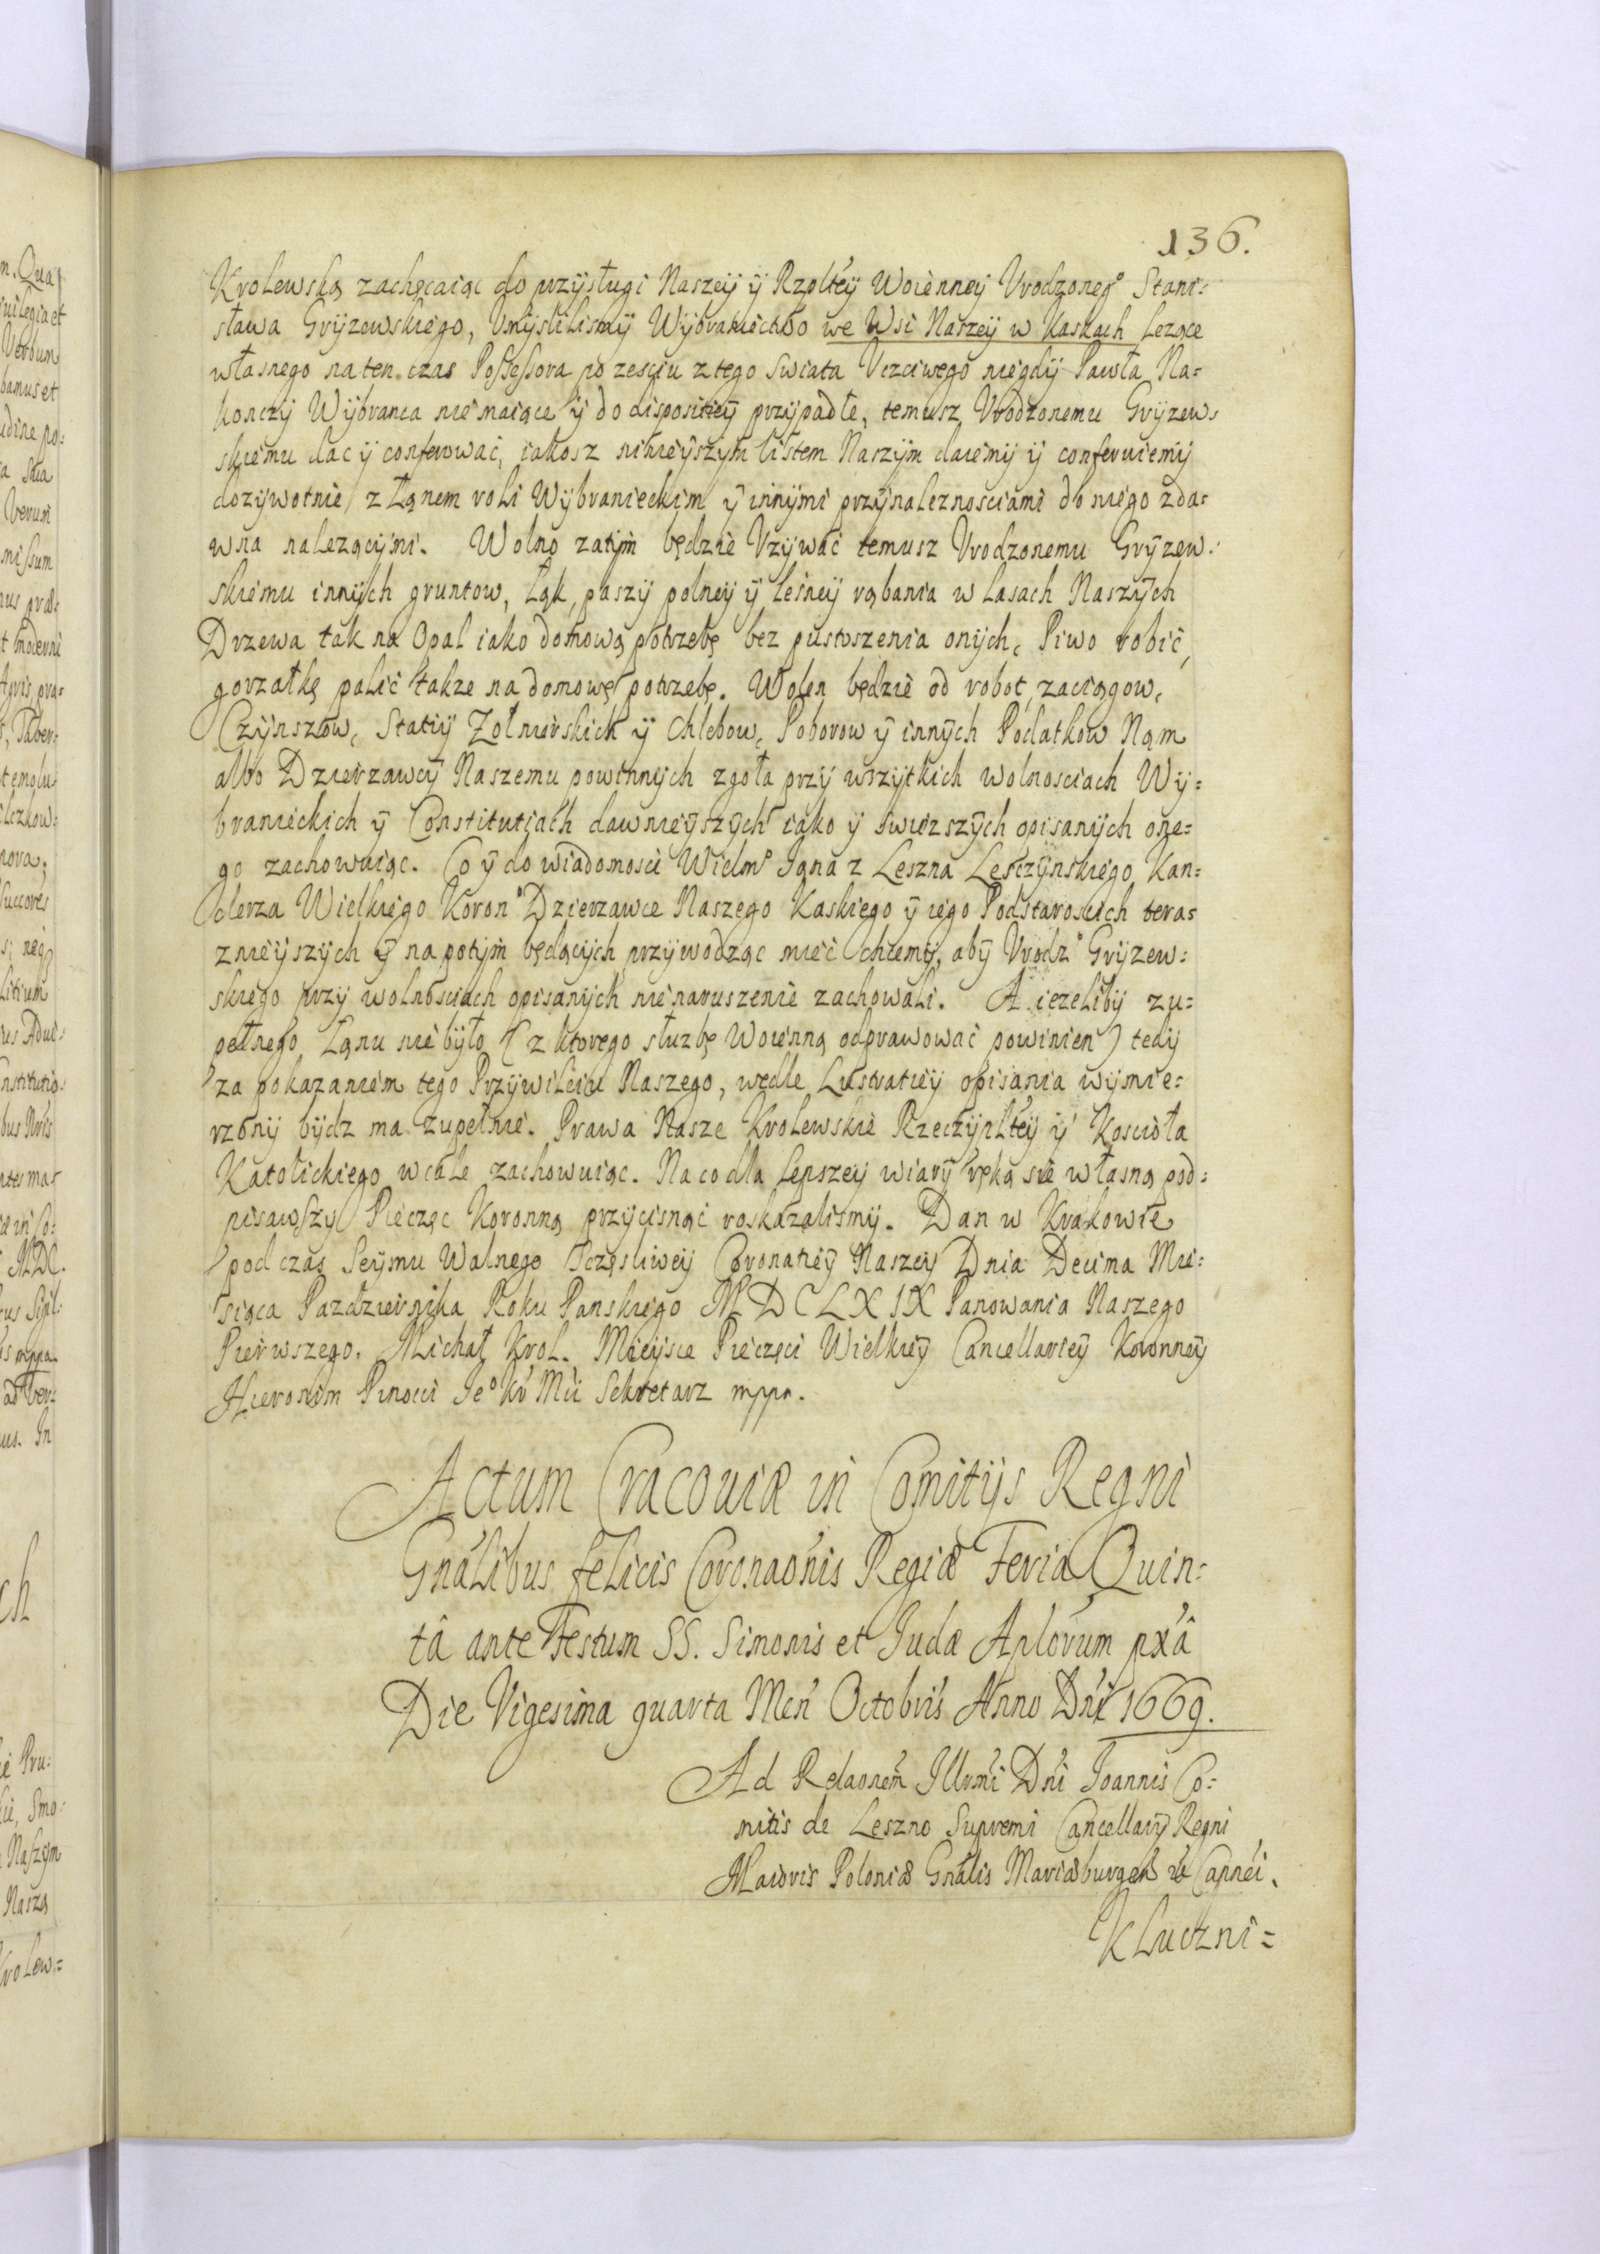 136.
Krolewską zachęcaiąc do przysługi Naszey ÿ Rzpltey Woienney Vrodzoneg° Stani=
sława Gryzewskiego, Vmyslilismÿ Wybraniectwo we Wsi Naszeÿ w Kaskach lezące
własnego na ten czas Possessora po zesciu z tego Swiata Vczciwego niegdy Pawła Na=
konczy Wybranca nie maiące ÿ do dispositieÿ przypadłe, temusz Vrodzonemu Gryzew=
skiemu dac ÿ conferowac, iakosz ninieyszym listem Naszym daiemy ÿ conferuiemy
dozywotnie z Łanem roli Wybranieckim ÿ innymi przynaleznosciami do niego zda=
wna nalezącymi. Wolno zatym będzie Vzywac temusz Vrodzonemu Gryzew=
skiemu innych gruntow, Łąk, paszy polney ÿ lesney rąbania w lasach Naszych
Drzewa tak na Opal iako domową potrzebę bez pustoszenia onych, Piwo robic,
gorzałkę palic takze na domową potrzebę. Wolen będzie od robot, zaciągow,
Czynszow, Statiy Zołnierskich ÿ Chlebow, Poborow ÿ innych Podatkow Nam
albo Dzierzawcy Naszemu powinnych zgoła przy wszytkich wolnosciach Wy=
branieckich ÿ Constitutiach dawnieyszych iako ÿ swiezszych opisanych one=
go zachowuiąc. Co ÿ do wiadomosci Wielm° Jana z Leszna Leszczynskiego Kan=
clerza Wielkiego Koron° Dzierzawce Naszego Kaskiego ÿ iego Podstaroscich tera=
znieyszych ÿ na potym będących przywodząc miec chcemy, aby Vrodz° Gryzew=
skiego przy wolnosciach opisanych nienaruszenie zachowali. A iezeliby zu=
pełnego Łanu nie było (z ktorego słuzbę Woienną odprawowac powinien) tedy
za pokazaniem tego Przywileiu Naszego, wedle Lustratiey opisania wymie=
rzony bydz ma zupełnie. Prawa Nasze Krolewskie Rzeczypltey ÿ Koscioła
Katolickiego wcale zachowuiąc. Na co dla lepszey wiary ręką się własną pod=
pisawszy Pieczęc Koronną przycisnąc roskazalismy. Dan w Krakowie
pod czas Seymu Walnego Sczęsliwey Coronatiey Naszey Dnia Decima Mie=
siąca Pazdziernika Roku Panskiego MDCLXIX Panowania Naszego
Pierwszego. Michał Krol. Mieysce Pieczęci Wielkiey Cancellariey Koronney
Hieronim Pinocci Je° Kr Mci Sekretarz mppr.
Actum Cracoviæ in Comitijs Regni
Gnalibus felicis Coronaonis Regiæ Feria Quin=
tâ ante Festum SS. Simonis et Judæ Aplorum pxâ
Die Vigesima quarta Men Octobris Anno Dni 1669.
Ad Relaonem Illrmi Dni Joannis Co=
mitis de Leszno Supremi Cancellarÿ Regni
Maioris Poloniæ Gnalis Mariæburgen Capnei.
Kluczni=